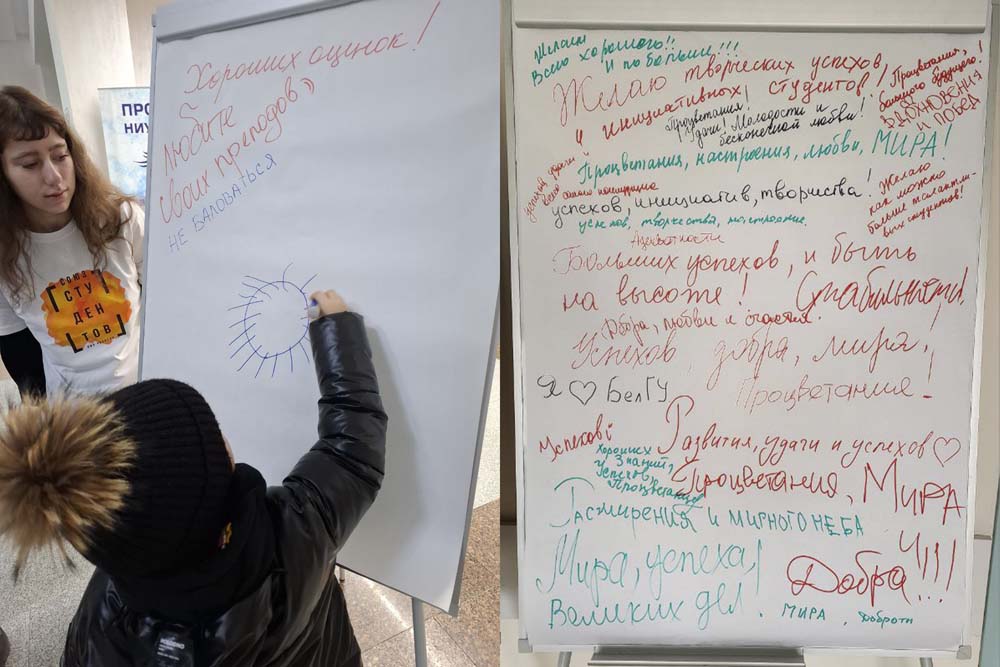 Хороших оценок!
любите
своих преподов))
НЕ БАЛОВАТЬСЯ
ПРО
НИУ
СОЮЗ
СТУ
ДЕН
ТОВ
Желаем
Всего хорошего!!
И побольше!!!
Желаю творческих успехов,
и инициативных студентов!
Процветания,
большого будущего!
ВДОХНОВЕНИЯ
И ПОБЕД
Процветания!
Удачи! Молодости и
бесконечной любви!
Процветания, настроения, любви, МИРА!
успехов, удачи
всего самого
успехов, инициатив, творчества!
успехов, творчества, настроение.
Желаю
как можно
больше талантли-
вых студентов!
Адекватности
Больших успехов, и быть
на высоте! Стабильности!
Добра, любви и счастья.
Успехов, добра, мира,
Процветания!
Я ♡ БелГУ
Успехов!
Развития, удачи и успехов ♡
Хороших
Знаний,
Успехов,
Процветания
Процветания, Мира
Расширения и мирного неба
Мира, успеха,
Великих дел!
Добра!!!!
МИРА, Доброты